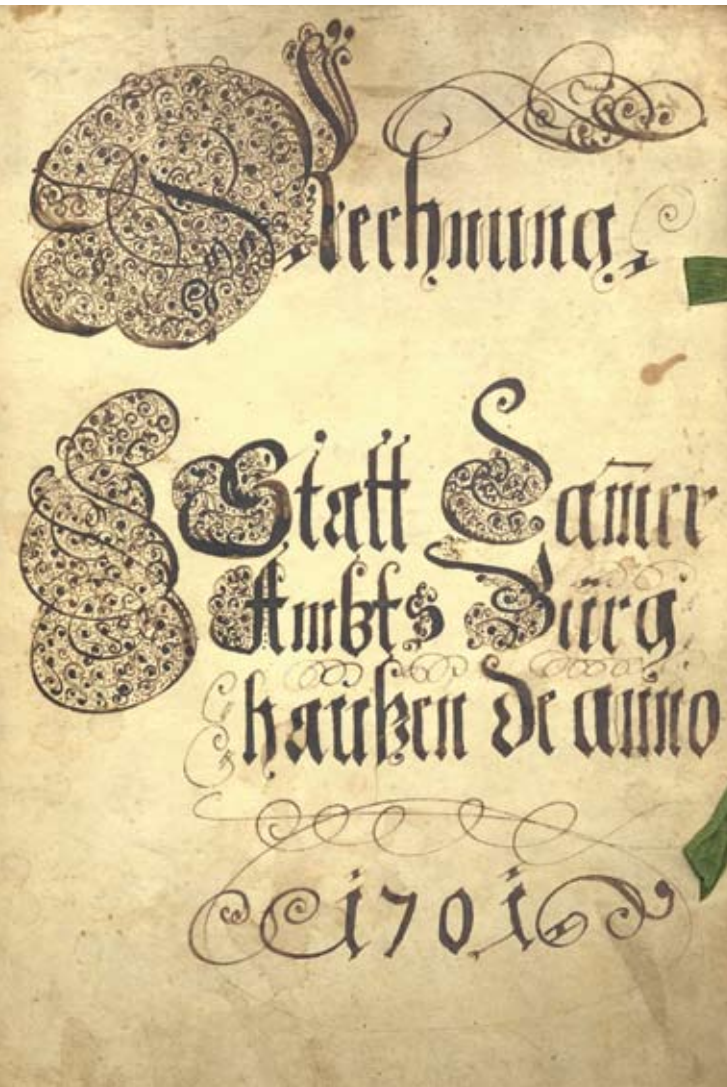 Rechnung,
Statt Cam̄er
Ambts Burg
haußen de anno
1701